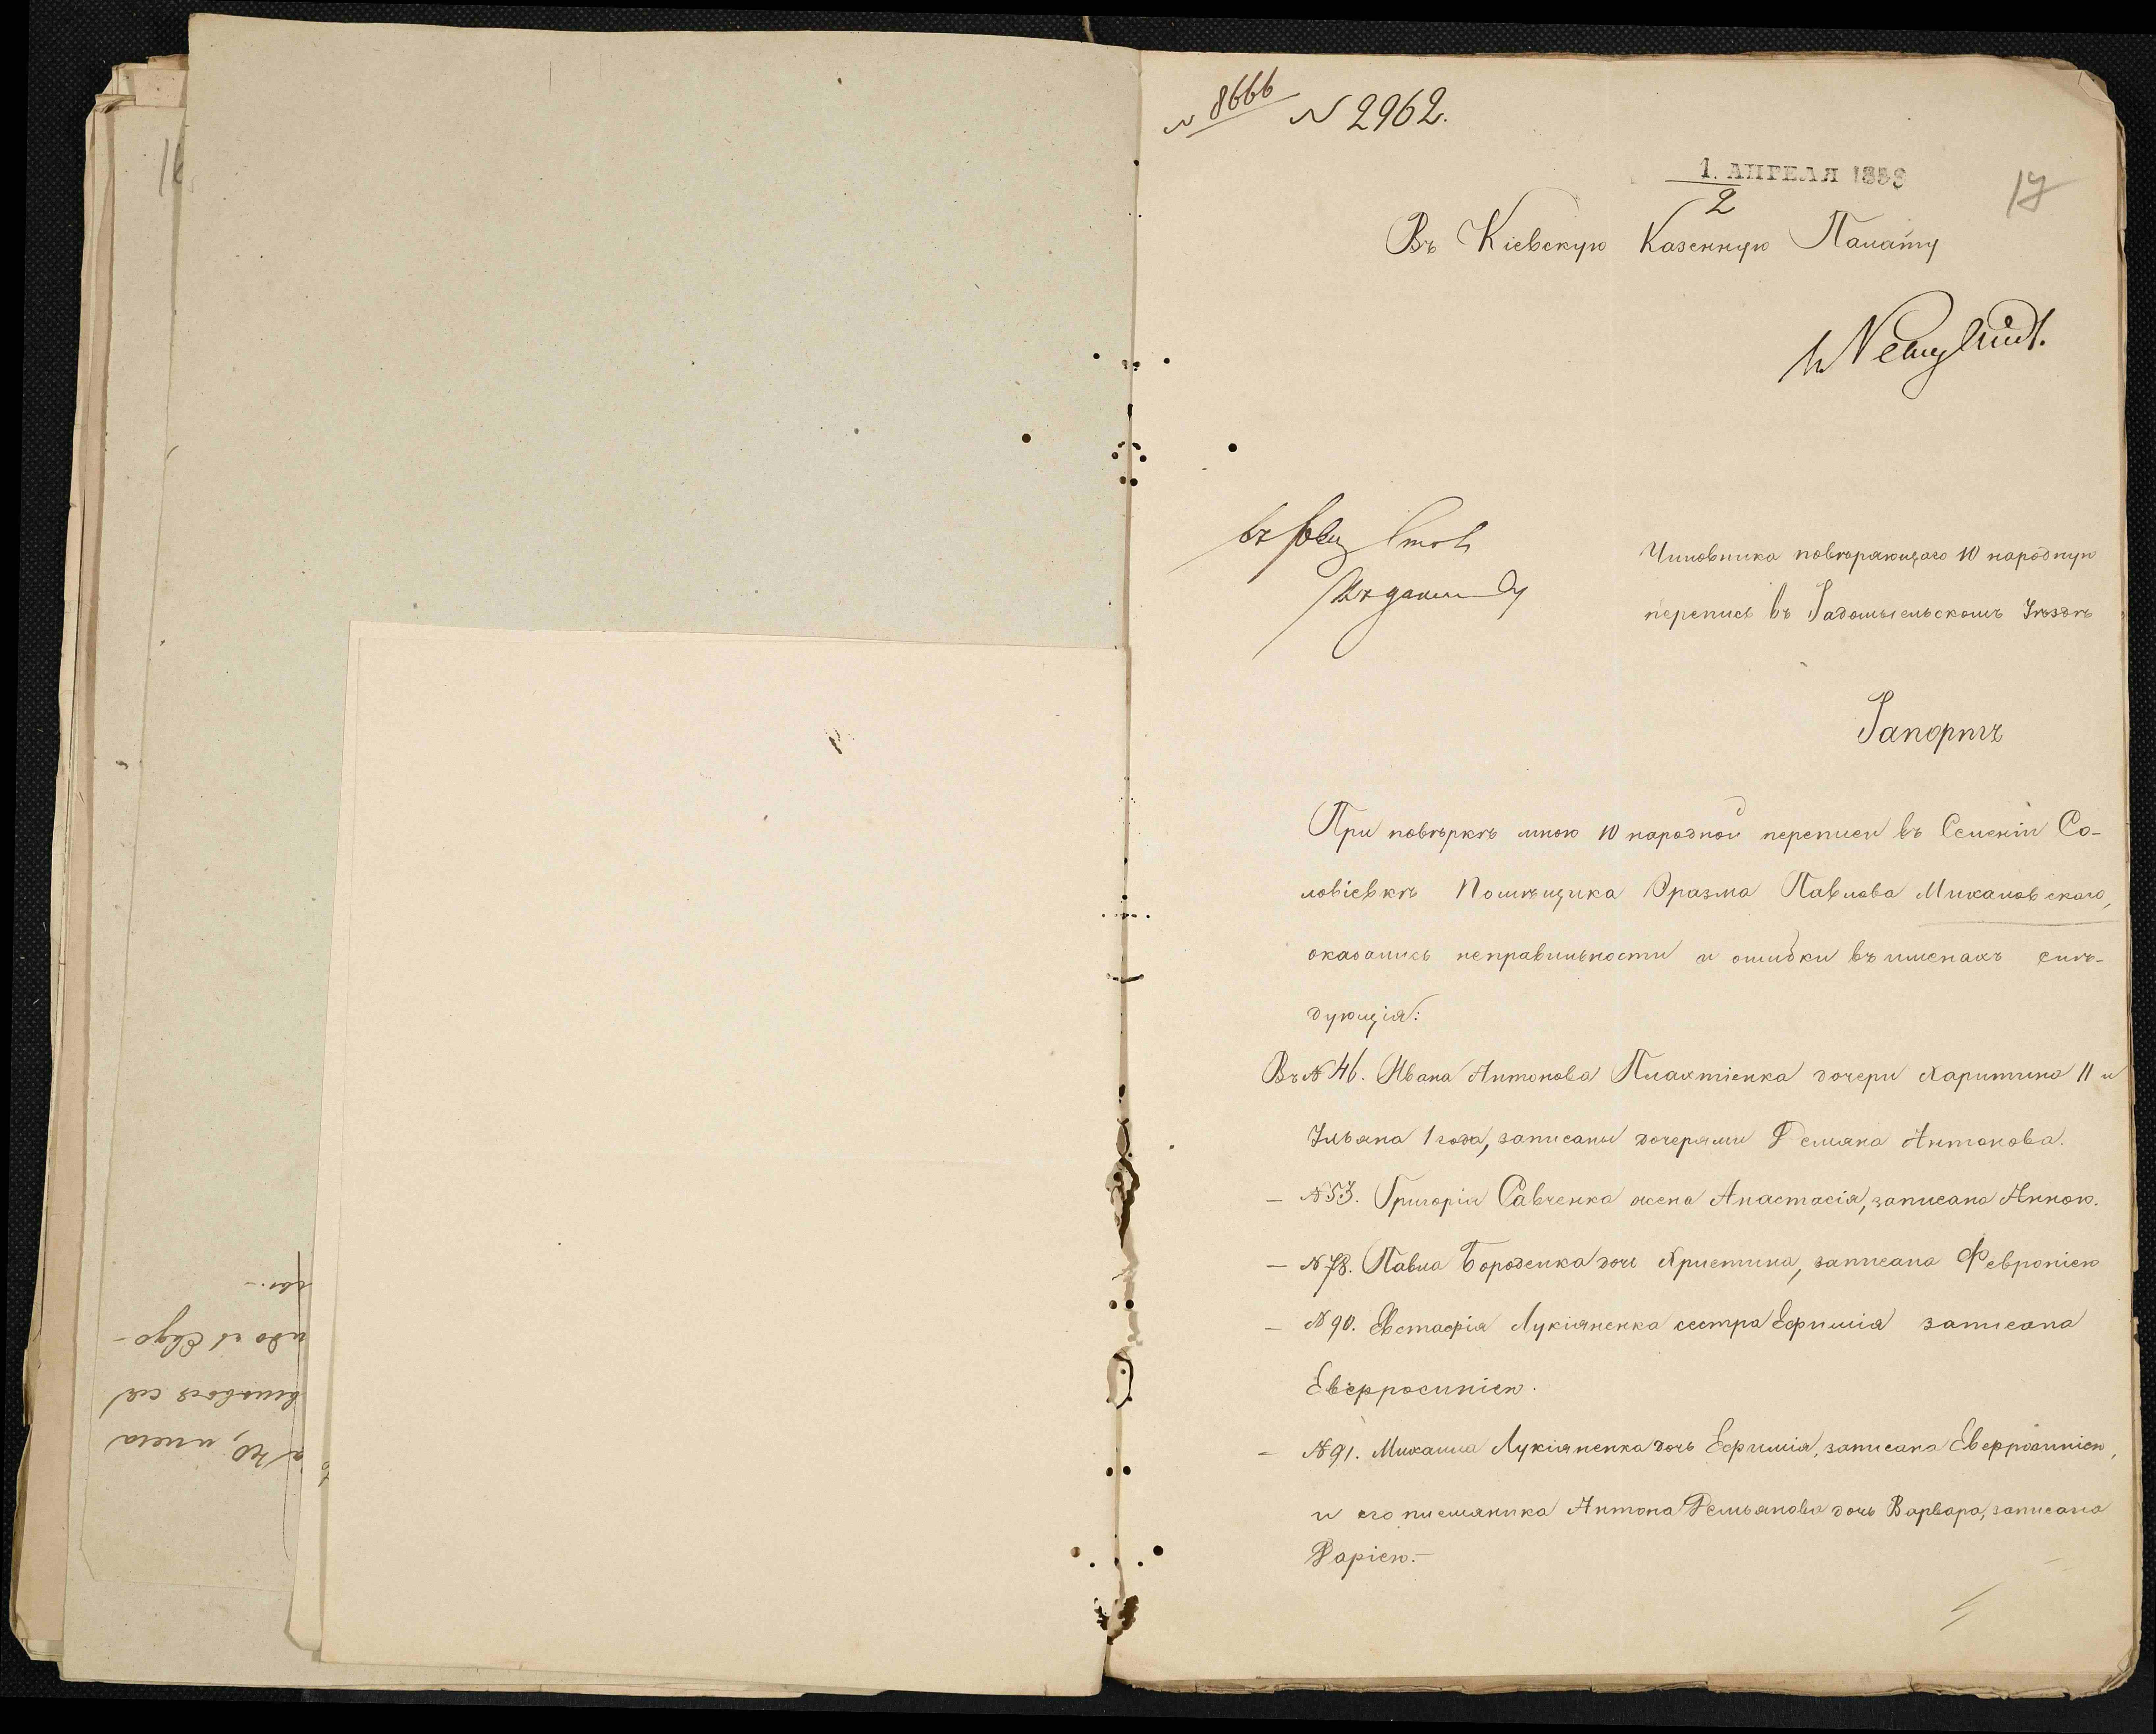 № 8666 № 2962.
1. АПРЕЛЯ 1859
2
17
Въ Кіевскую Казенную Палату
Чиновника повѣряющаго 10 народную
перепись въ Радомысльскомъ Уѣздѣ
Рапортъ
При повѣркѣ мною 10 народной переписи въ Селеніи Со-
ловіевкѣ Помѣщика Эразма Павлова Михаловскаго,
оказались неправильности и ошибки въ именахъ слѣ-
дующія:
Въ № 46. Ивана Антонова Плахтіенка дочери Харитина 11 и
Ульяна 1 года, записаны дочерями Демяна Антонова.
— № 53. Григорія Савченка жена Анастасія, записана Анною.
— № 78. Павла Бороденка дочь Христина, записана Февроніею
— № 90. Евстафія Лукіяненка сестра Ефимія записана
Евфросиніею.
— № 91. Михаила Лукіяненка дочь Ефимія, записана Евфросиніею,
и его племяника Антона Демьянова дочь Варвара, записана
Даріею.—
16